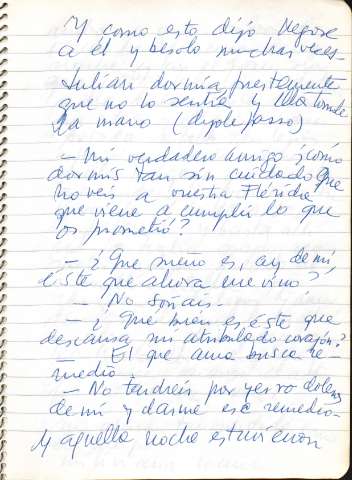 Y como esto dijo llegose
a él y besolo muchas veces-
Julián dormía prestamente
que no lo sentía y ella tomole
la mano (dijole passo)
- Mi verdadero amigo ¿cómo
dormís tan sin cuidado que
no veis a vuestra Flérida
que viene a cumplir lo que
os prometió?
- ¿Qué sueño es, ay de mí,
éste que ahora me vino?
- No soñais-
- ¿Qué bien es éste que
descansa mi atribulado corazón?
- El que ama busca re-
medio.
- No tendreis por yerro doleros
de mí y darme ese remedio-
Y aquella noche estuvieron